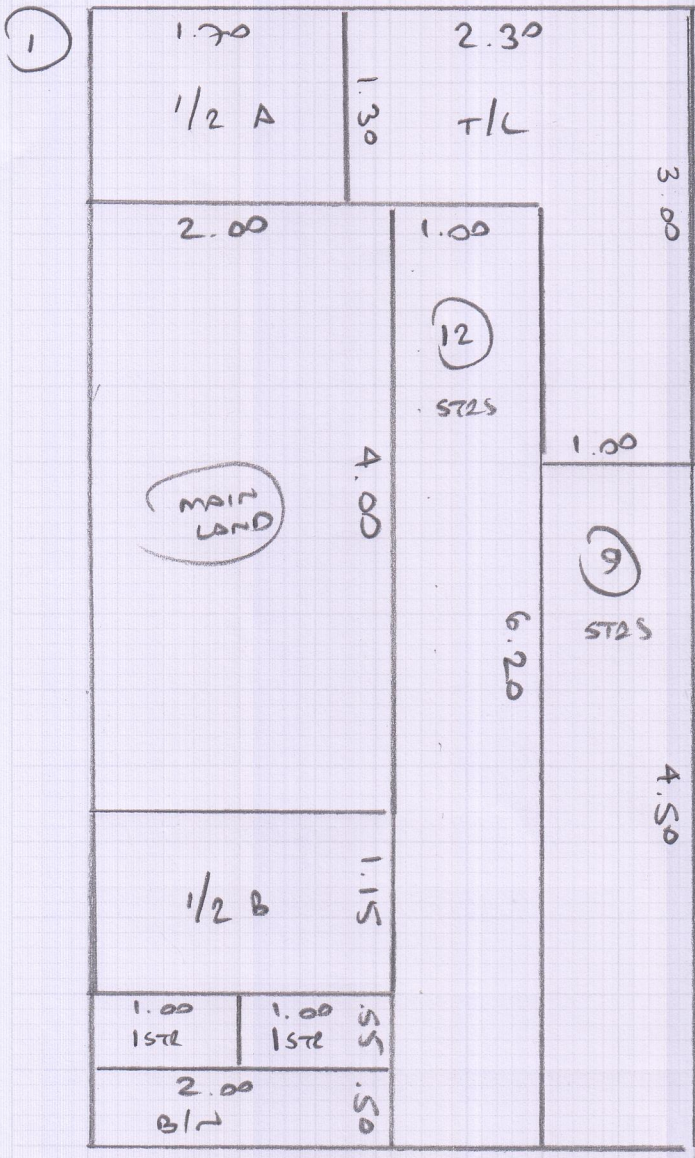 1
1.70
1/2 A
1.30
2.30
T/L
3.00
2.00
1.00
12
STRS
4.00
MAIN
LAND
6.20
1.00
9
STRS
4.50
1/2 B
1.15
1.00
1 STR
1.00
1 STR
.55
2.00
.50